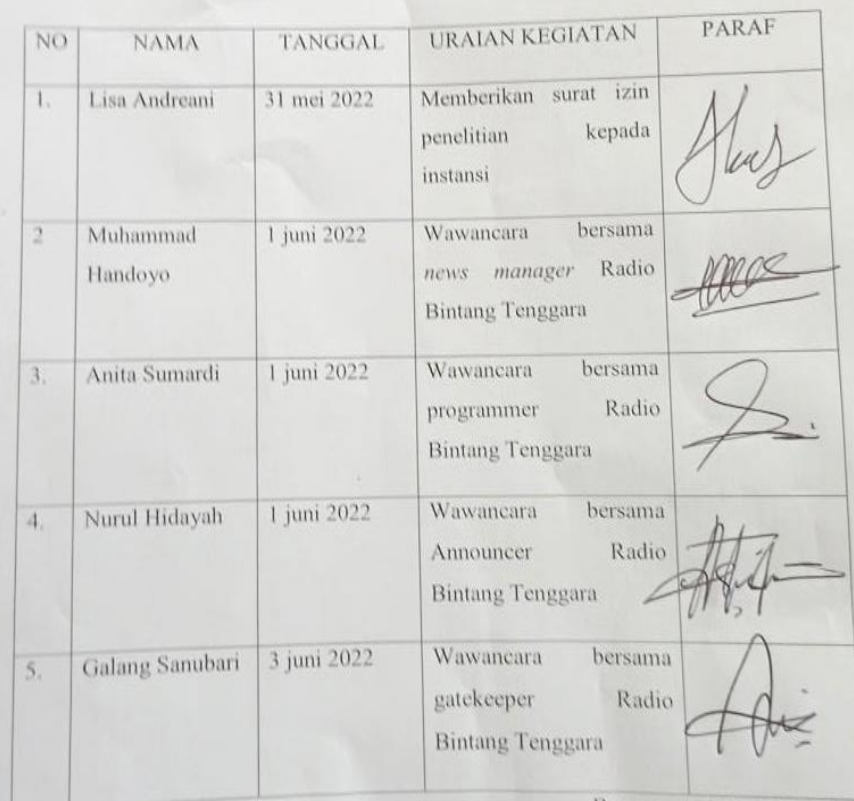 NO NAMA TANGGAL URAIAN KEGIATAN PARAF
1. Lisa Andreani 31 mei 2022 Memberikan surat izin
penelitian kepada
instansi
2 Muhammad 1 juni 2022 Wawancara bersama
Handoyo news manager Radio
Bintang Tenggara
3. Anita Sumardi 1 juni 2022 Wawancara bersama
programmer Radio
Bintang Tenggara
4. Nurul Hidayah 1 juni 2022 Wawancara bersama
Announcer Radio
Bintang Tenggara
5. Galang Sanubari 3 juni 2022 Wawancara bersama
gatekeeper Radio
Bintang Tenggara